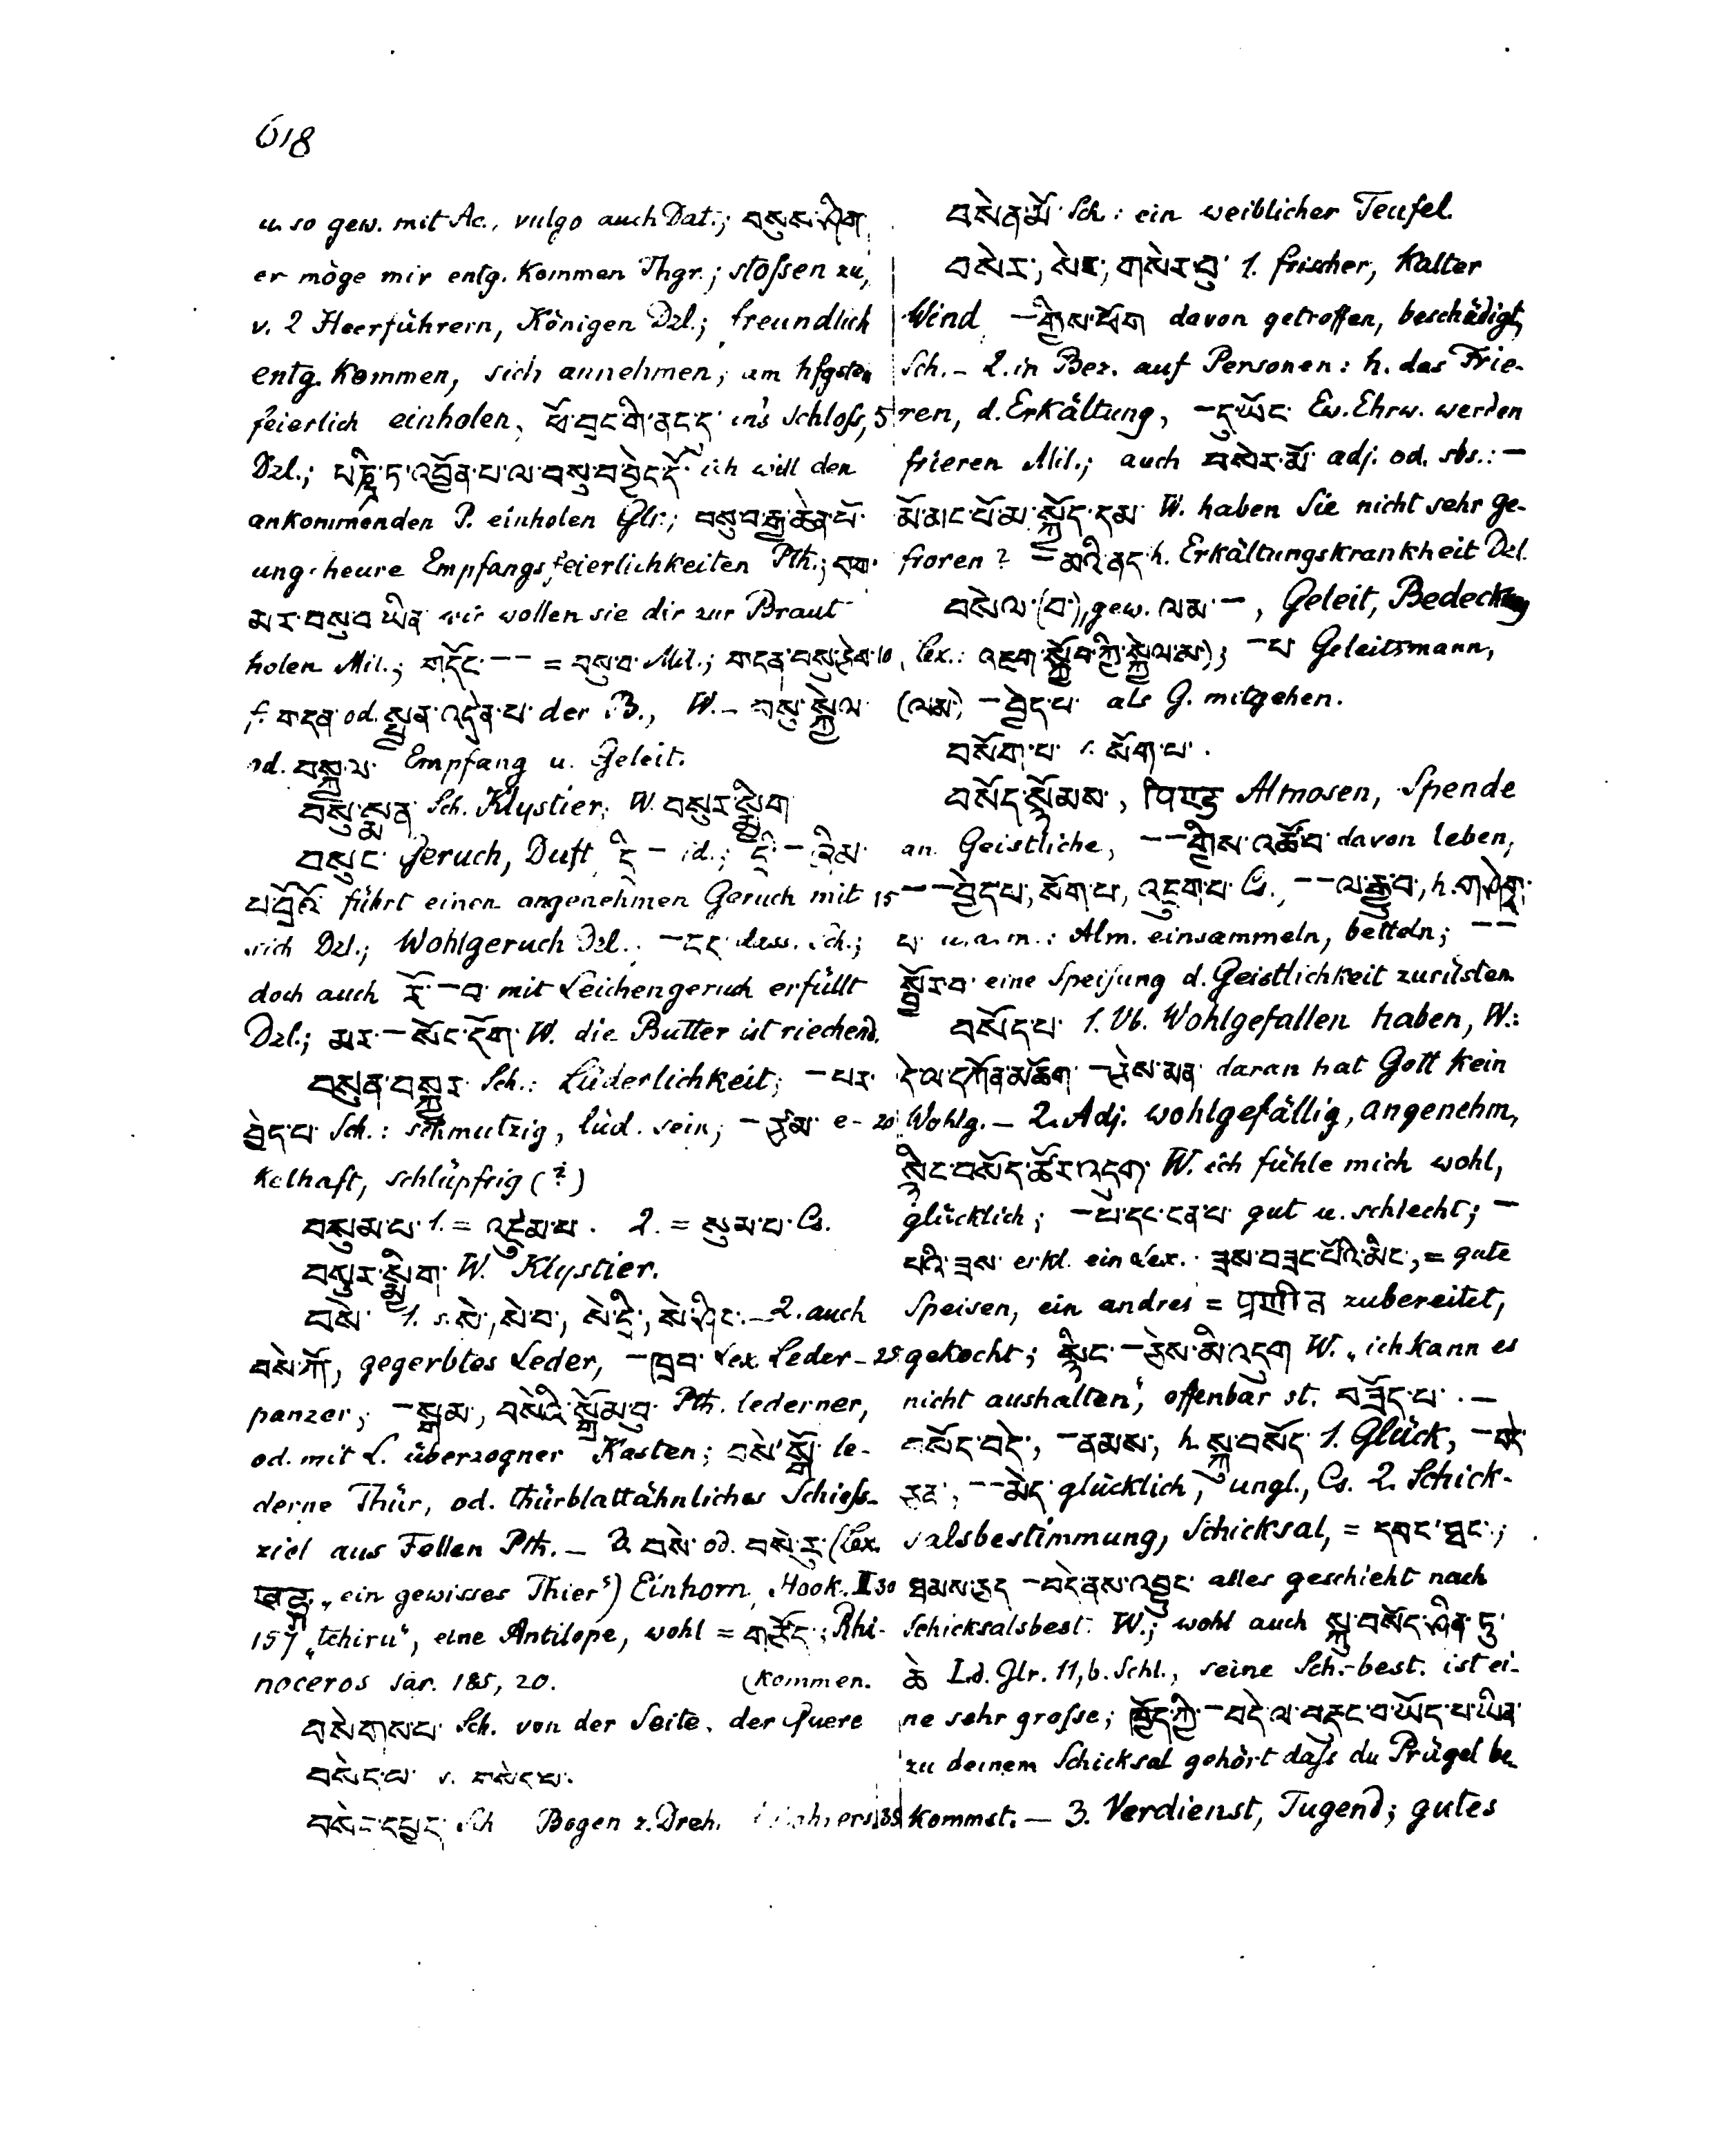 618
u. so gew. mit Ac., vulgo auch Dat.; བསུས་ཤིག
er möge mir entg. kommen Thgr.; stoßen zu,
v. 2 Heerführern, Königen Dzl.; freundlich
entg. kommen, sich annehmen; am hfgsten
feierlich einholen, ཕོ་བྲང་གི་ནང་ད་ in's Schloß, 5
Dzl.; པཎྜི་ཏ་འབྱོན་པ་ལ་བསུ་བ་བྱེད་དོ་ ich will den
ankommenden P. einholen Glr.; བསུ་བ་རྒྱ་ཆེན་པོ་
ungeheure Empfangsfeierlichkeiten Pth.; དག་
མར་བསུ་བ་ཡིན་ wir wollen sie dir zur Braut
holen Mil.; གདོང་ -- = བསུ་བ་ Mil.; གདན་བསུ་ 10
f. གདན་ od. སྤྱན་འདྲེན་པ་ der B., W. - བསུ་སྐྱེལ་
od. བསྐྱལ་ Empfang u. Geleit.
བསུ་སྨན་ Sch. Klystier; W. བསུར་སྨིག
བསུང་ Geruch, Duft, དྲི་ - id.; དྲི་ - ཞིམ་
པ་བྲོའོ་ führt einen angenehmen Geruch mit 15
sich Dzl.; Wohlgeruch Dzl.; - དང་ dass. Sch.;
doch auch རོ་ - བ་ mit Leichengeruch erfüllt
Dzl.; མར་ - སོང་དོག་ W. die Butter ist riechend.
བསུན་བསྐྱར་ Sch.: Lüderlichkeit; - པར་
བྱེད་པ་ Sch.: schmutzig, lüd. sein; - e- 20
kelhaft, schlüpfrig (?)
བསུམ་པ་ 1. = འཛུམ་པ་. 2. = སུམ་པ་ Cs.
བསུར་སྨིག་ W. Klystier.
བསེ་ 1. s. སེ་, སེ་བ་, སེ་དྲི་, སེ་ཤིང་. - 2. auch
བསེ་ཀོ་, gegerbtes Leder, - ཁྲབ་ Lex. Leder- 25
panzer; - སྒམ་, བསེའི་སྒྲོམ་བུ་ Pth. lederner,
od. mit L. überzogner Kasten; བསེ་སྒོ་ le-
derne Thür, od. thürblattähnliches Schieß-
ziel aus Fellen Pth. - 3. བསེ་ od. བསེ་རུ་ (Lex.
„ein gewisses Thier“) Einhorn, Hook. I 30
157 „tchiru“, eine Antilope, wohl = གཙོད་; Rhi-
noceros Sar. 185, 20. (kommen.
བསེགས་པ་ Sch. von der Seite, der Quere
བསེང་པ་ s. གསེང་པ་.
Sch Bogen z. Dreh. 35
བསེན་མོ་ Sch.: ein weiblicher Teufel.
བསེར་, སེར་, གསེར་བུ་ 1. frischer, kalter
Wind, - གྱིས་ཕོག davon getroffen, beschädigt,
Sch. - 2. in Bez. auf Personen: h. das Frie-
ren, d. Erkältung, - དུ་ཡོང་ Ew. Ehrw. werden
frieren Mil.; auch བསེར་མོ་ adj. od. sbs.: -
མོ་མང་པོ་མ་སྐྱོད་དམ་ W. haben Sie nicht sehr ge-
froren? - མའི་ནད་ h. Erkältungskrankheit Dzl.
བསེལ་(བ་), gew. ལམ་ -, Geleit, Bedeckung
Lex.: འཇིག་སྐྱོབ་ཀྱི་སྐྱེལ་མ་); - པ་ Geleitsmann,
(ལམ་) - བྱེད་པ་ als G. mitgehen.
བསོག་པ་ s. སོག་པ་.
བསོད་སྙོམས་, पिण्ड Almosen, Spende
an Geistliche, -- གྱིས་འཚོ་བ་ davon leben;
-- བྱེད་པ་, སོག་པ་, འདུག་པ་ Cs., -- ལ་རྒྱུ་བ་, h. གཤེགས་
པ་ u.a.m.: Alm. einsammeln, betteln; --
སྦྱོར་བ་ eine Speisung d. Geistlichkeit zurüsten.
བསོད་པ་ 1. Vb. Wohlgefallen haben, W.:
དེ་ལ་དཀོན་མཆོག་ - ཇེས་མན་ daran hat Gott kein
Wohlg. - 2. Adj. wohlgefällig, angenehm,
སྙིང་བསོད་ཚོར་འདུག་ W. ich fühle mich wohl,
glücklich; - པ་དང་ངན་པ་ gut u. schlecht; -
པའི་ཟས་ erkl. ein Lex. ཟས་བཟང་པོའི་མིང་, = gute
Speisen, ein andres = प्रणीत zubereitet,
gekocht; སྙིང་ - ཇེས་མི་འདུག W. „ich kann es
nicht aushalten“, offenbar st. བཟོད་པ་. -
བསོད་བདེ་, - ནམས་, h. སྐུ་བསོད་ 1. Glück, - བདེ་
ཅན་, -- མེད་ glücklich, ungl., Cs. 2. Schick-
salsbestimmung, Schicksal, = དབང་ཐང་;
ཐམས་ཅད་ - བདེ་ནས་འབྱུང་ alles geschieht nach
Schicksalsbest. W.; wohl auch སྐུ་བསོད་ཤིན་ཏུ་
ཆེ L.d. Glr. 11,b. Schl., seine Sch.-best. ist ei-
ne sehr große; ཁྱོད་ཀྱི་ - བདེ་ལ་བརྡུང་བ་ཡོད་པ་ཡིན་
zu deinem Schicksal gehört daß du Prügel be-
kommst. - 3. Verdienst, Tugend; gutes